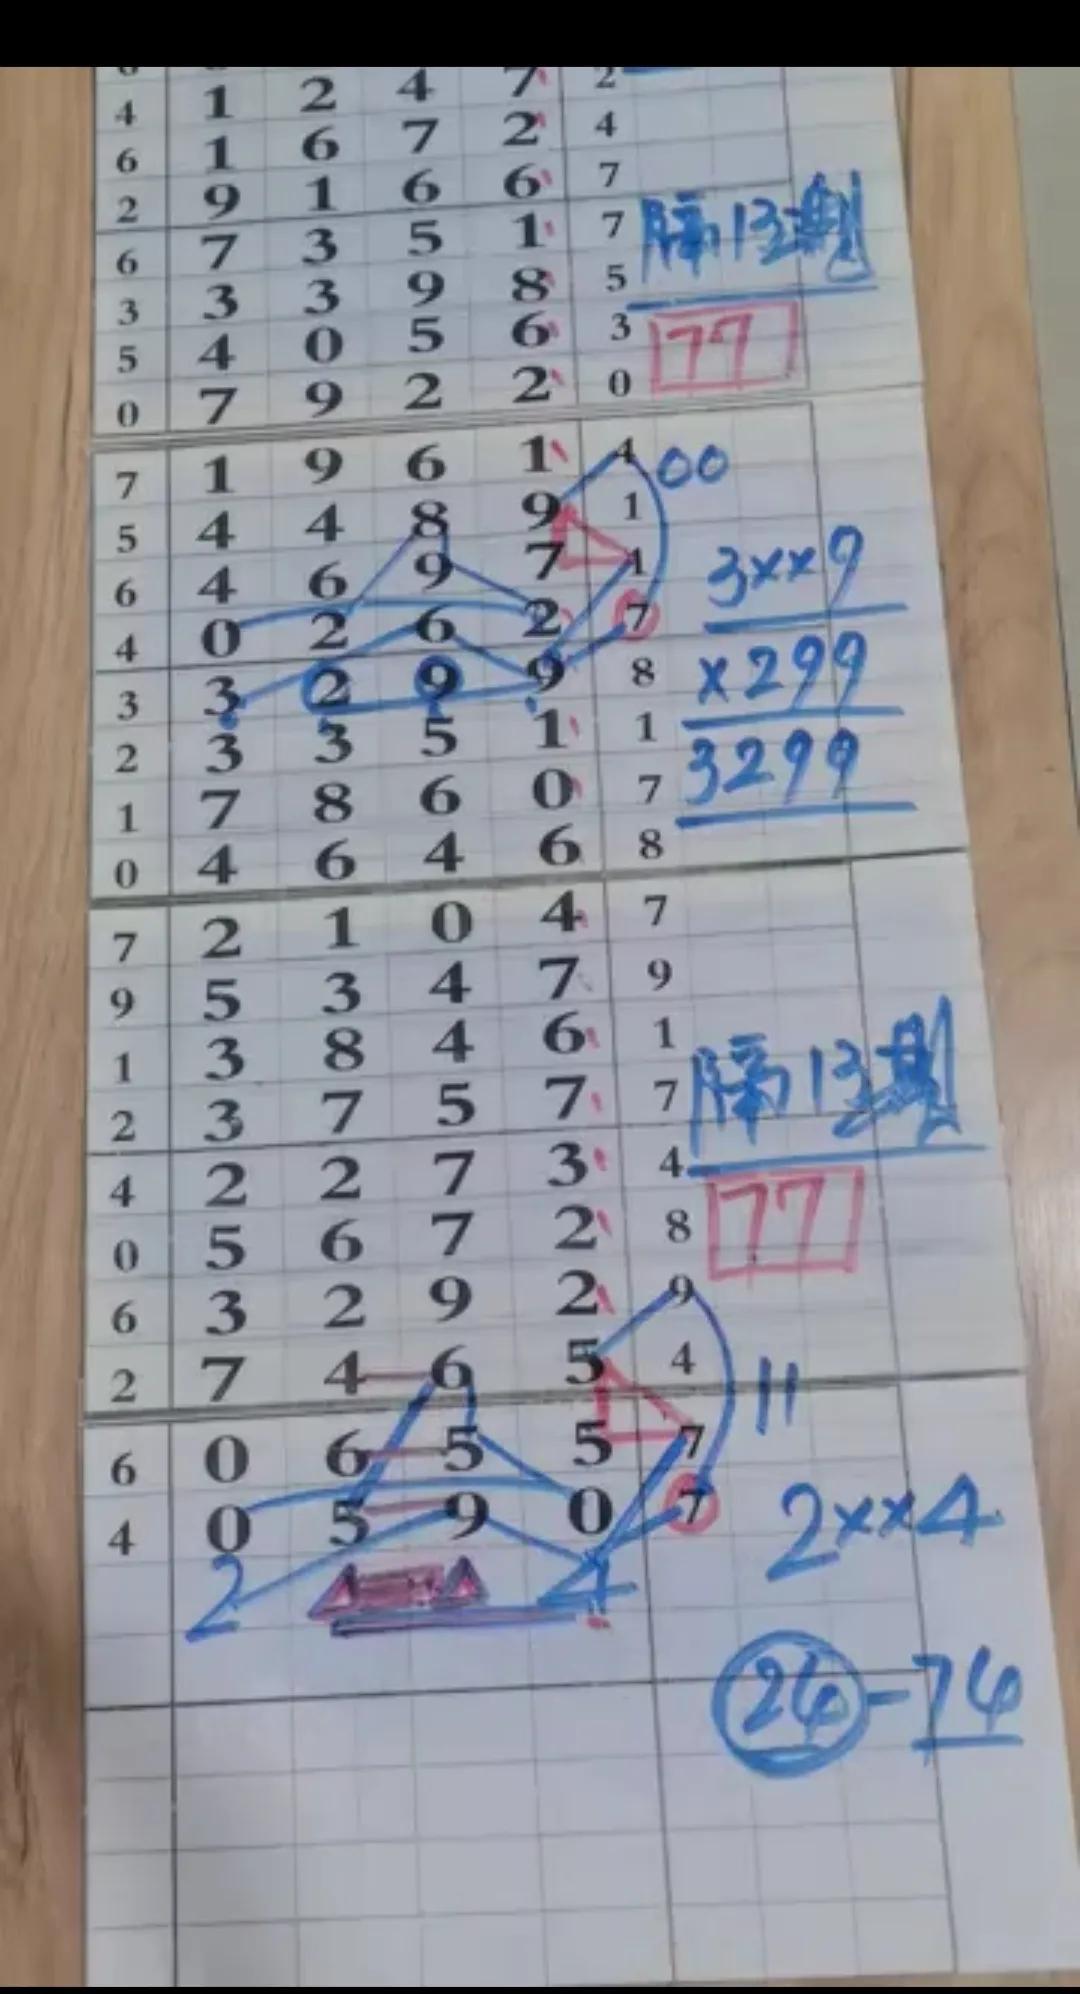 4 1 2 4 7 2
6 1 6 7 2 4
2 9 1 6 6 7
6 7 3 5 1 7
隔13期
3 3 3 9 8 5
5 4 0 5 6 3
77
0 7 9 2 2 0
7 1 9 6 1 4
00
5 4 4 8 9 1
6 4 6 9 7 1
3××9
4 0 2 6 2 7
3 3 2 9 9 8
×299
2 3 3 5 1 1
3299
1 7 8 6 0 7
0 4 6 4 6 8
7 2 1 0 4 7
9 5 3 4 7 9
1 3 8 4 6 1
2 3 7 5 7 7
隔13期
4 2 2 7 3 4
0 5 6 7 2 8
77
6 3 2 9 2 9
2 7 4 6 5 4
11
6 0 6 5 5 7
4 0 5 9 0 7
2××4
2 4
24-74